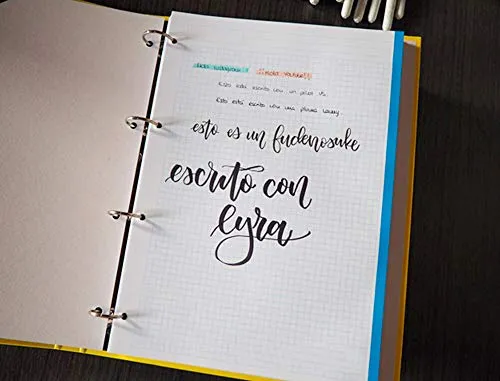 ¡¡Hola youtube!!
Esto está escrito con un pilot V5
Esto está escrito con una pluma Lamy
esto es un fudenosuke
escrito con
lyra